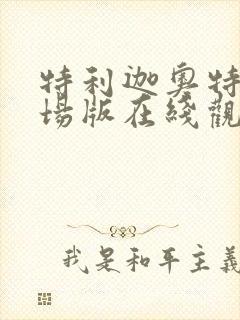 特利迦奥特
場版在綫觀
我是和平主義